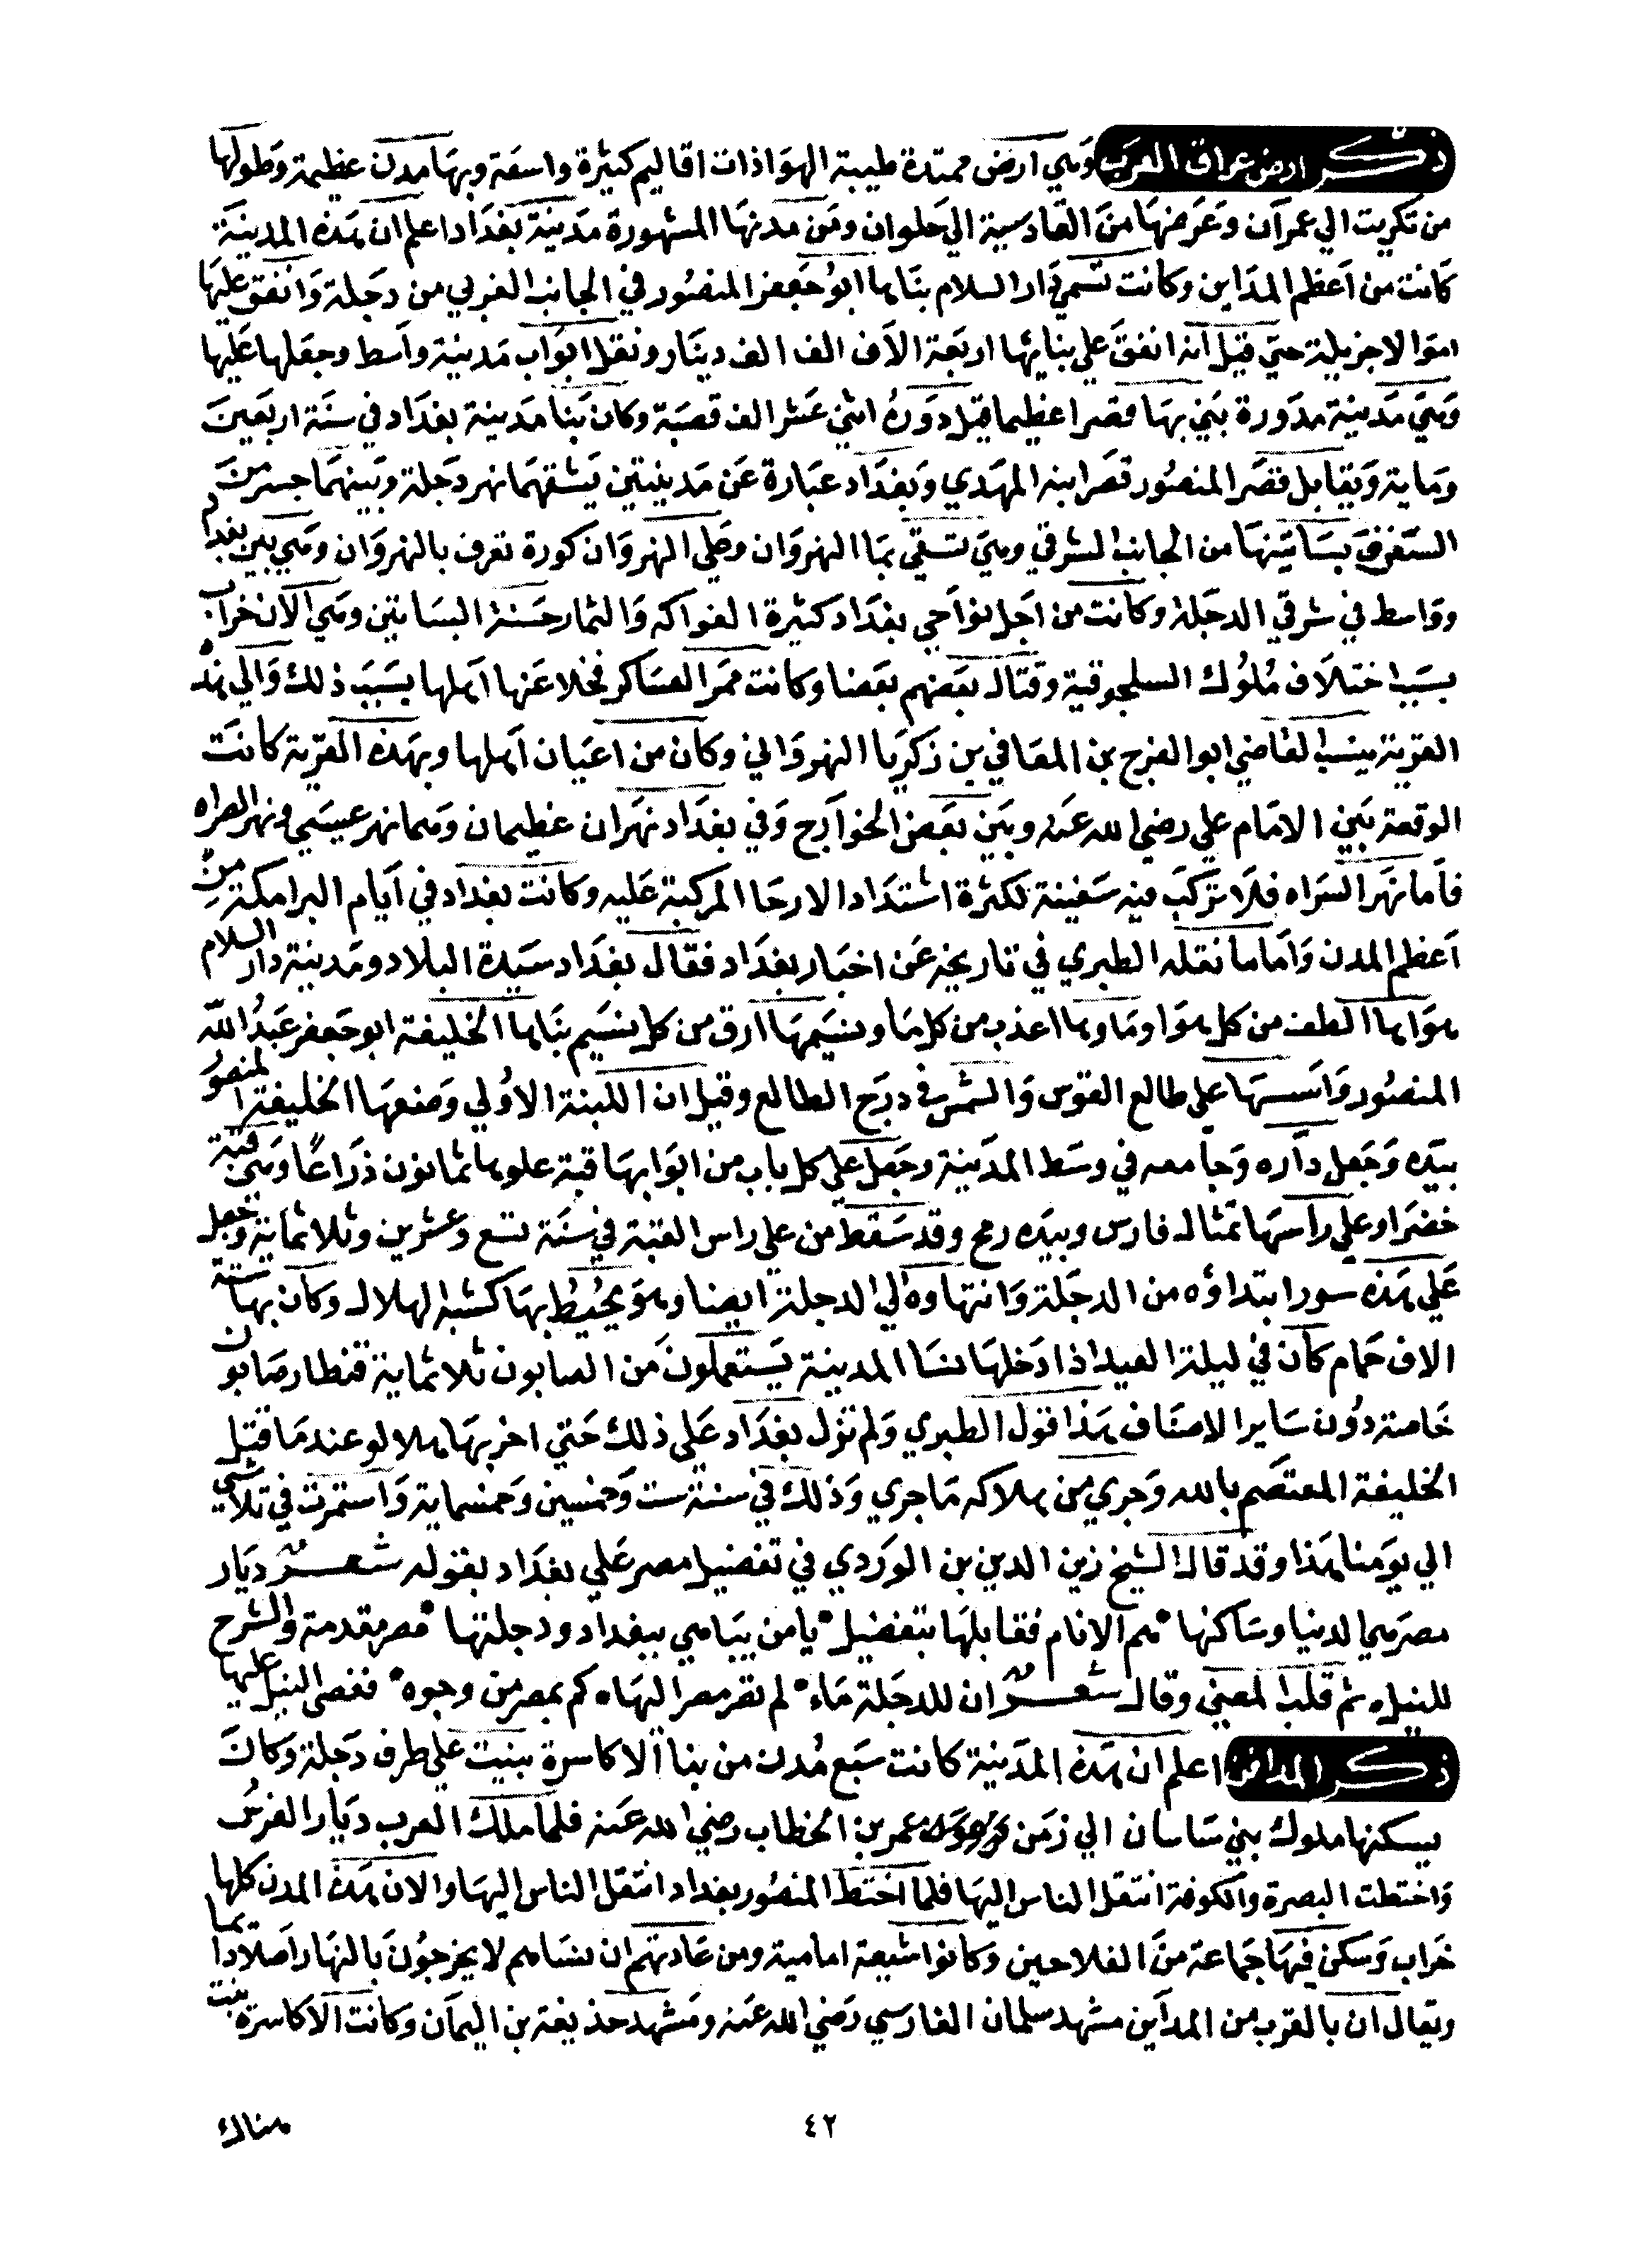 ذكر ارض عراق العرب وهي ارض ممتدة طيبة الهوا ذات اقاليم كثيرة واسعة وبها مدن عظيمة وطولها
من تكريت الي عمران وعرضها من القادسية الي حلوان ومن مدنها المشهورة مدينة بغداد اعلم ان هذه المدينة
كانت من اعظم المداين وكانت تسمي دار السلام بناها ابو جعفر المنصور في الجانب الغربي من دجلة وانفق عليها
اموالا جزيلة حتي قيل انه انفق علي بنائها اربعة الاف الف الف دينار ونقل ابواب مدينة واسط وجعلها عليها
وهي مدينة مدورة بني بها قصرا عظيما قيل دوره اثني عشر الف قصبة وكان بنا مدينة بغداد في سنة اربعين
وماية ويقابل قصر المنصور قصر ابنه المهدي وبغداد عبارة عن مدينيتين يشقهما نهر دجلة وبينهما جسر من
السفن بساتينها من الجانب الشرقي وهي تسقي بما النهروان وعلي النهروان كورة تعرف بالنهروان وهي بين بغداد
وواسط في شرقي الدجلة وكانت من اجل نواحي بغداد كثيرة الفواكه والثمار حسنة البساتين وهي الان خراب
بسبب اختلاف ملوك السلجوقية وقتال بعضهم بعضا وكانت ممر العساكر فخلا عنها اهلها بسبب ذلك والي هذه
القرية ينسب القاضي ابو الفرج بن المعافي بن زكريا النهرواني وكان من اعيان اهلها وبهذه القرية كانت
الوقعة بين الامام علي رضي الله عنه وبين بعض الخوارج وفي بغداد نهران عظيمان وهما نهر عيسي ونهر الصراه
فاما نهر السراه فلا تركب فيه سفينة لكثرة اشتداد الارحا المركبة عليه وكانت بغداد في ايام البرامكة من
اعظم المدن واما ما نقله الطبري في تاريخه عن اخبار بغداد فقال بغداد سيدة البلاد ومدينة دار السلام
هواها الطف من كل هوا وماوها اعذب من كل ما ونسيمها ارق من كل نسيم بناها الخليفة ابو جعفر عبد الله
المنصور واسسها علي طالع القوس والشمس في درج الطالع وقيل ان اللبنة الاولي وضعها الخليفة المنصور
بيده وجعل داره وجامعه في وسط المدينة وجعل علي كل باب من ابوابها قبة علوها ثمانون ذراعا وهي قبة
خضرا وعلي راسها تمثال فارس وبيده رمح وقد سقط من علي راس القبة في سنة تسع وعشرين وثلاثماية وجعل
علي هذه سورا بتداؤه من الدجلة وانتهاوه الي الدجلة ايضا وهو يحيط بها كشبه الهلال وكان بها ستة
الاف حمام كان في ليلة العيد اذا دخلها نسا المدينة يستعملون من الصابون ثلاثماية قنطار صابون
خاصة دون ساير الاصناف هذا قول الطبري ولم تزل بغداد علي ذلك حتي اخربها هلالو عند ما قتل
الخليفة المعتصم بالله وجري من هلاكه ما جري وذلك في سنة ست وخمسين وخمسماية واستمرت في تلاشي
الي يومنا هذا وقد قال الشيخ زين الدين بن الوردي في تفضيل مصر علي بغداد بقوله شعر ديار
مصر هي الدنيا وساكنها * هم الانام فقابلها بتفضيل * يا من يباهي ببغداد ودجلتها * مصر مقدمة والشرح
للنيل ه ثم قلب المعني وقال شعر ان للدجلة ماء * لم تقر مصر اليها ه كم بمصر من وجوه * فغصي النيل عليها
ذكر المداين اعلم ان هذه المدينة كانت سبع مدن من بنا الاكاسرة بنيت علي طرف دجلة وكان
يسكنها ملوك بني ساسان الي زمن عمر بن الخطاب رضي الله عنه فلما ملك العرب ديار الفرس
واختطت البصرة والكوفة انتقل الناس اليها فلما اختط المنصور بغداد انتقل الناس اليها والان هذه المدن كلها
خراب وسكن فيها جماعة من الفلاحين وكانوا شيعة امامية ومن عادتهم ان نساهم لا يخرجون بالنهار اصلا دايما
ويقال ان بالقرب من المداين مشهد سلمان الفارسي رضي الله عنه ومشهد حذيفة بن اليمان وكانت الاكاسرة بنت
٤٢
هناك